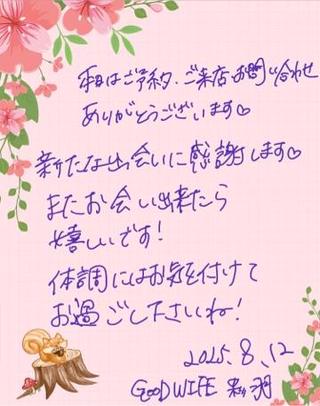 本日はご予約、ご来店、お問い合わせ
ありがとうございます♡
新たな出会いに感謝します♡
またお会い出来たら
嬉しいです!
体調にはお気を付けて
お過ごし下さいね!
2025.8.12
GOOD WIFE